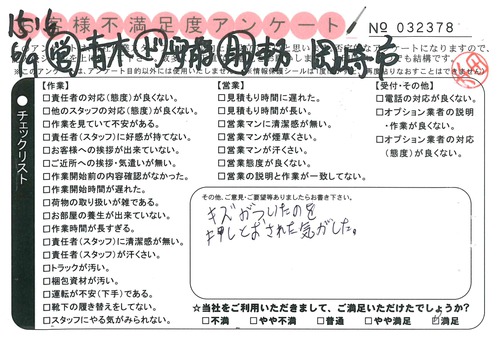 お客様不満足度アンケート
№ 032378
岡崎市
チェックリスト
【作業】
□責任者の対応(態度)が良くない。
□他のスタッフの対応(態度)が良くない。
□作業を見ていて不安がある。
□責任者(スタッフ)に好感が持てない。
□お客様への挨拶が出来ていない。
□ご近所への挨拶・気遣いが無い。
□作業開始前の内容確認がなかった。
□作業開始時間が遅れた。
□荷物の取り扱いが雑である。
□お部屋の養生が出来ていない。
□作業時間が長すぎる。
□責任者(スタッフ)に清潔感が無い。
□責任者(スタッフ)が汗くさい。
□トラックが汚い。
□梱包資材が汚い。
□運転が不安(下手)である。
□靴下の履き替えをしてない。
□スタッフにやる気がみられない。
【営業】
□見積もり時間に遅れた。
□見積もり時間が長い。
□営業マンに清潔感が無い。
□営業マンが煙草くさい。
□営業マンが汗くさい。
□営業態度が良くない。
□営業の説明と作業が一致してない。
【受付・その他】
□電話の対応が良くない。
□オプション業者の説明
・作業が良くない。
□オプション業者の対応
(態度)が良くない。
その他、ご意見・ご要望等ありましたらお書き下さい。
キズがついたのを
押しとおされた気がした。
☆当社をご利用いただきまして、ご満足いただけたでしょうか?
□不満 □やや不満 □普通 □やや満足 □満足